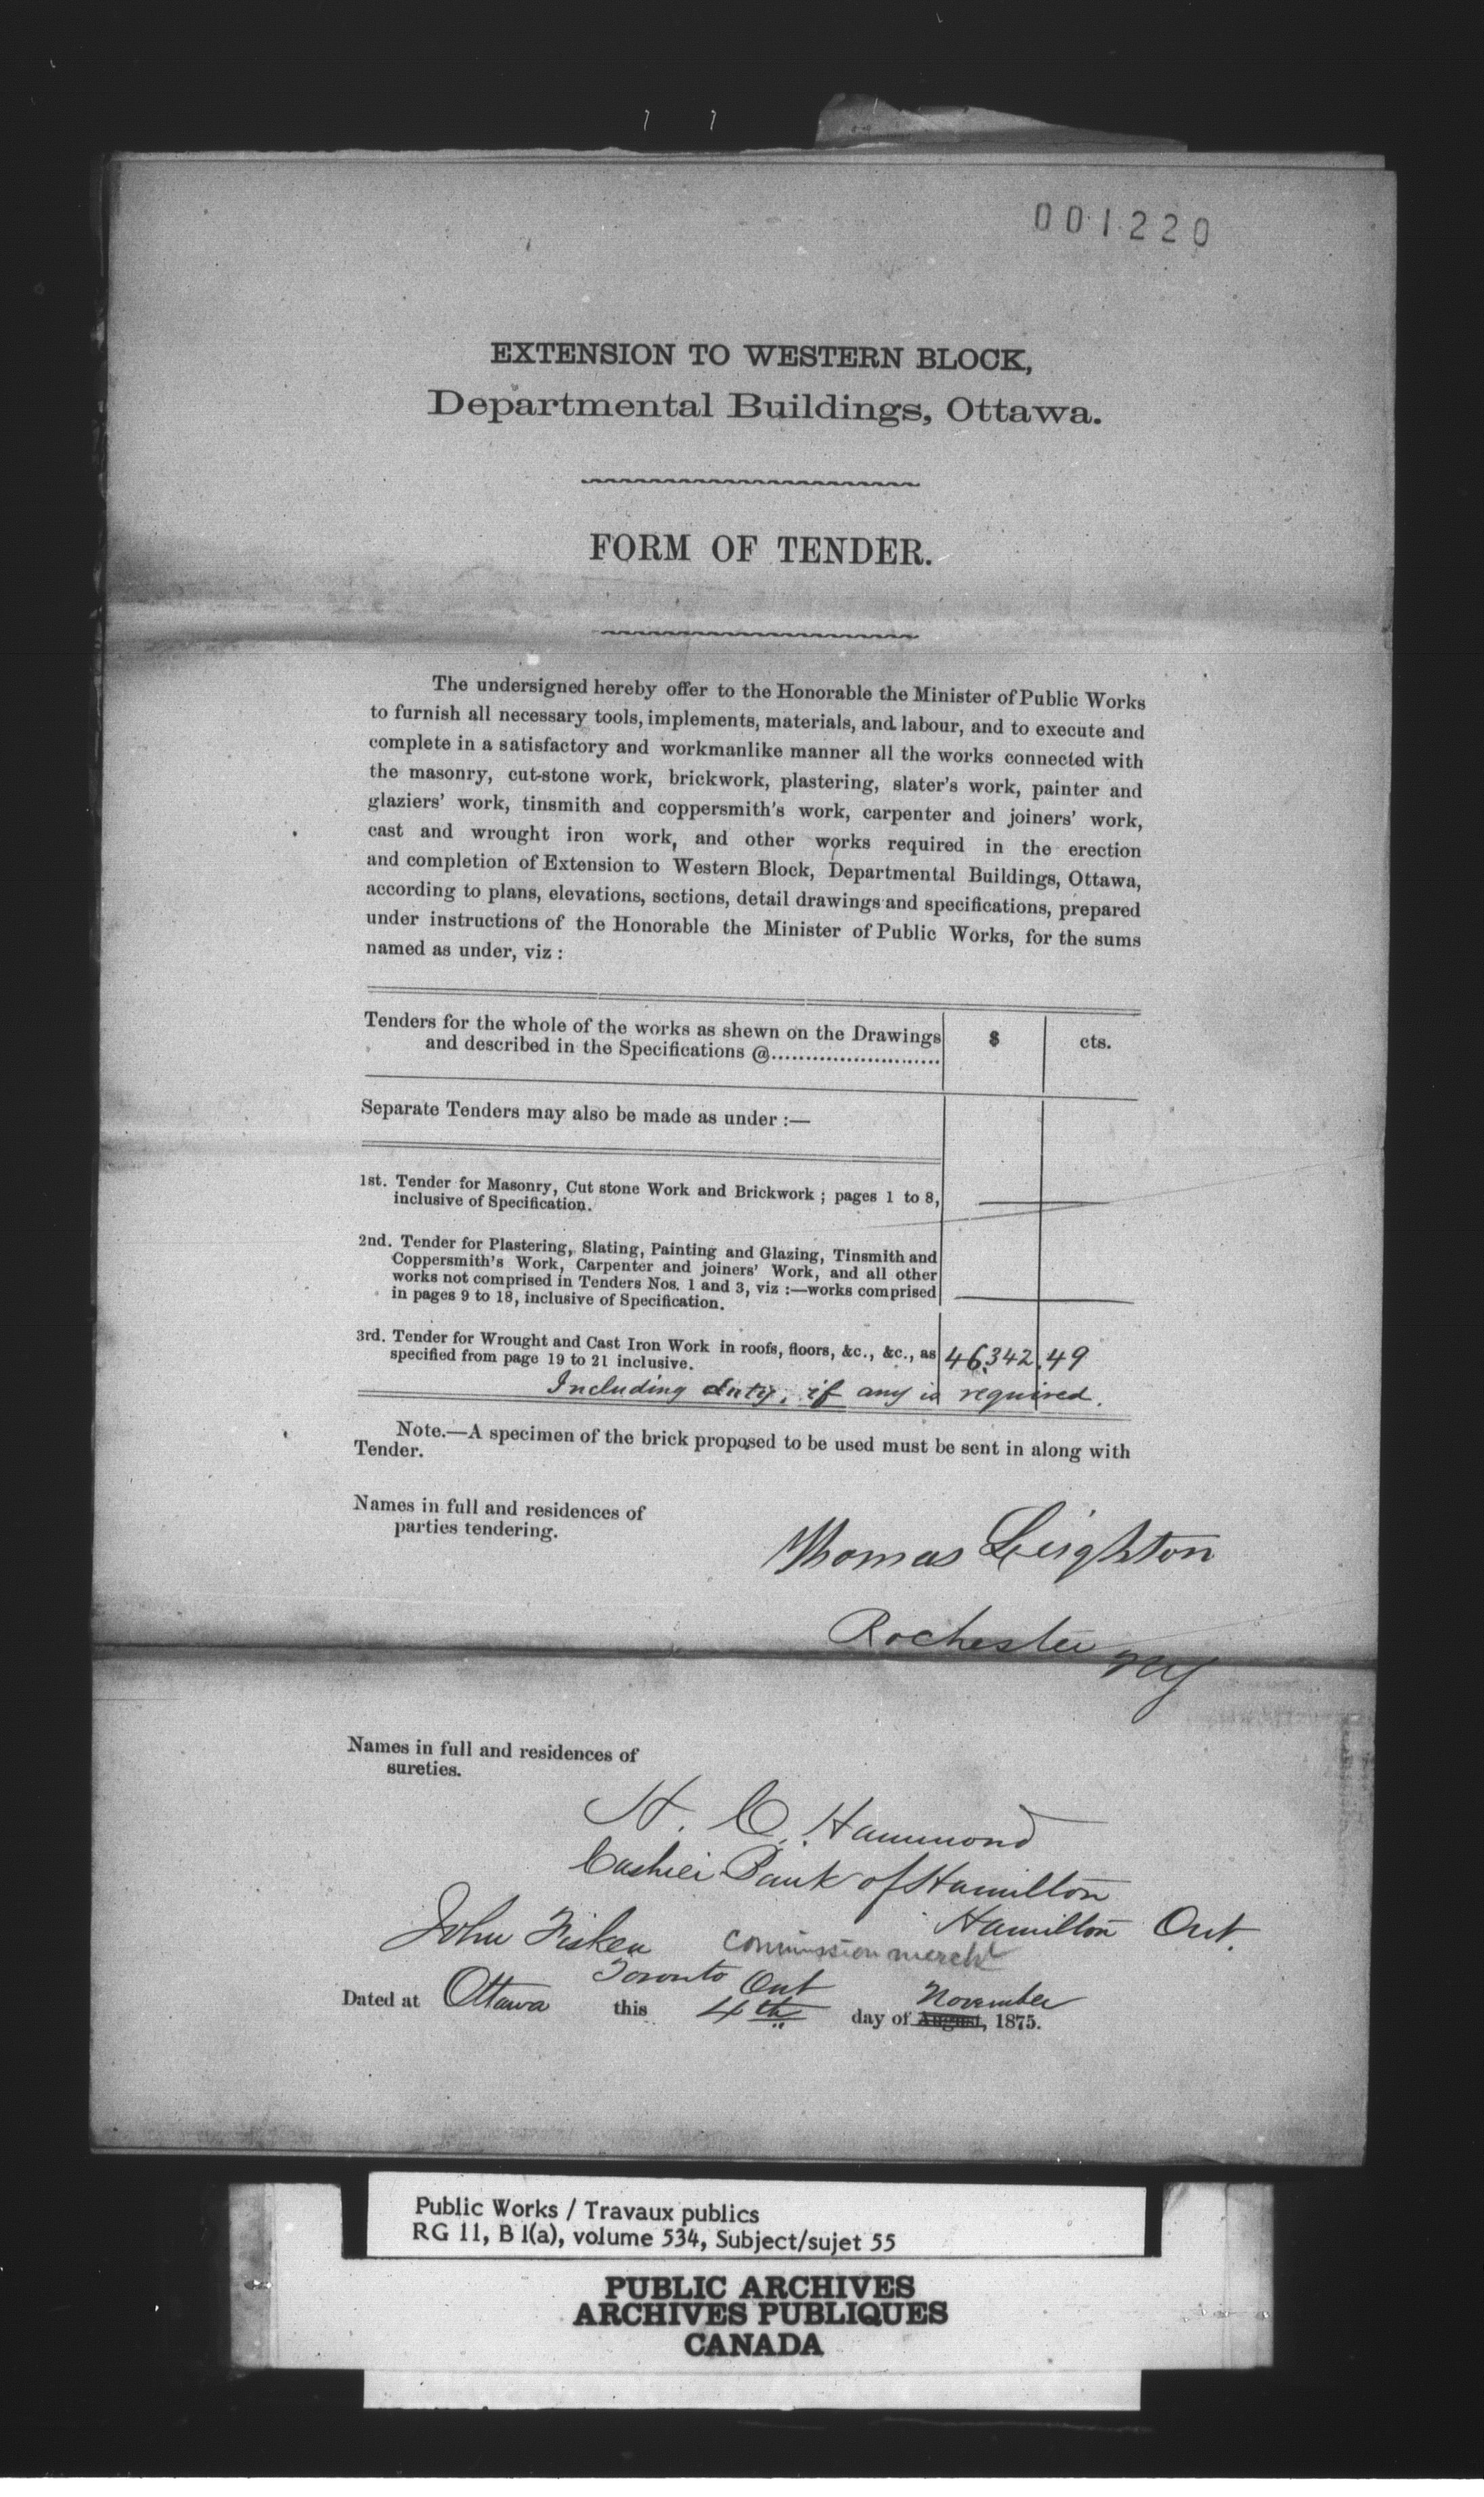 001220
EXTENSION TO WESTERN BLOCK,
Departmental Buildings, Ottawa.
FORM OF TENDER.
The undersigned hereby offer to the Honorable the Minister of Public Works
to furnish all necessary tools, implements, materials, and labour, and to execute and
complete in a satisfactory and workmanlike manner all the works connected with
the masonry, cut-stone work, brickwork, plastering, slater's work, painter and
glaziers' work, tinsmith and coppersmith's work, carpenter and joiners' work,
cast and wrought iron work, and other works required in the erection
and completion of Extension to Western Block, Departmental Buildings, Ottawa,
according to plans, elevations, sections, detail drawings and specifications, prepared
under instructions of the Honorable the Minister of Public Works, for the sums
named as under, viz :
Tenders for the whole of the works as shewn on the Drawings
and described in the Specifications @......................... $ cts.
Separate Tenders may also be made as under :—
1st. Tender for Masonry, Cut stone Work and Brickwork ; pages 1 to 8,
inclusive of Specification.
2nd. Tender for Plastering, Slating, Painting and Glazing, Tinsmith and
Coppersmith's Work, Carpenter and joiners' Work, and all other
works not comprised in Tenders Nos. 1 and 3, viz :—works comprised
in pages 9 to 18, inclusive of Specification.
3rd. Tender for Wrought and Cast Iron Work in roofs, floors, &c., &c., as
specified from page 19 to 21 inclusive. 46,342.49
Including duty, if any is required.
Note.—A specimen of the brick proposed to be used must be sent in along with
Tender.
Names in full and residences of
parties tendering.
Thomas Leighton
Rochester NY
Names in full and residences of
sureties.
H. C. Hammond
Cashier Bank of Hamilton
Hamilton Ont.
John Fisken commission mercht
Toronto Ont
Dated at Ottawa this 4th day of August, November 1875.
Public Works / Travaux publics
RG 11, B 1(a), volume 534, Subject/sujet 55
PUBLIC ARCHIVES
ARCHIVES PUBLIQUES
CANADA